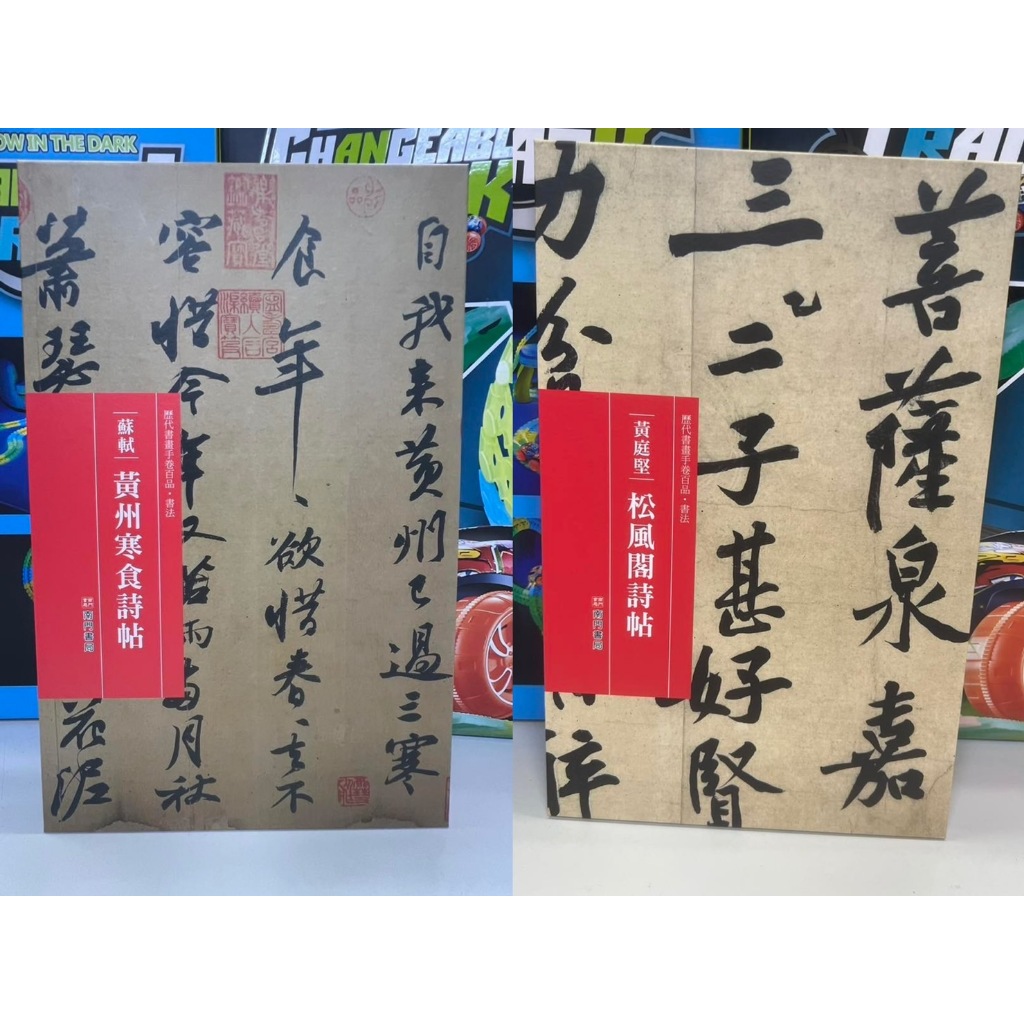 OW IN THE DARK
CHANGEABL
自我来黄州已過三寒
食年〻欲惜春〻去不
容惜今年又苦雨兩月秋
蕭瑟
花泥
歷代書畫手卷百品・書法
蘇軾
黃州寒食詩帖
南門書局
TRA
菩薩泉嘉
三〻二子甚好賢
力貧
歷代書畫手卷百品・書法
黃庭堅
松風閣詩帖
南門書局